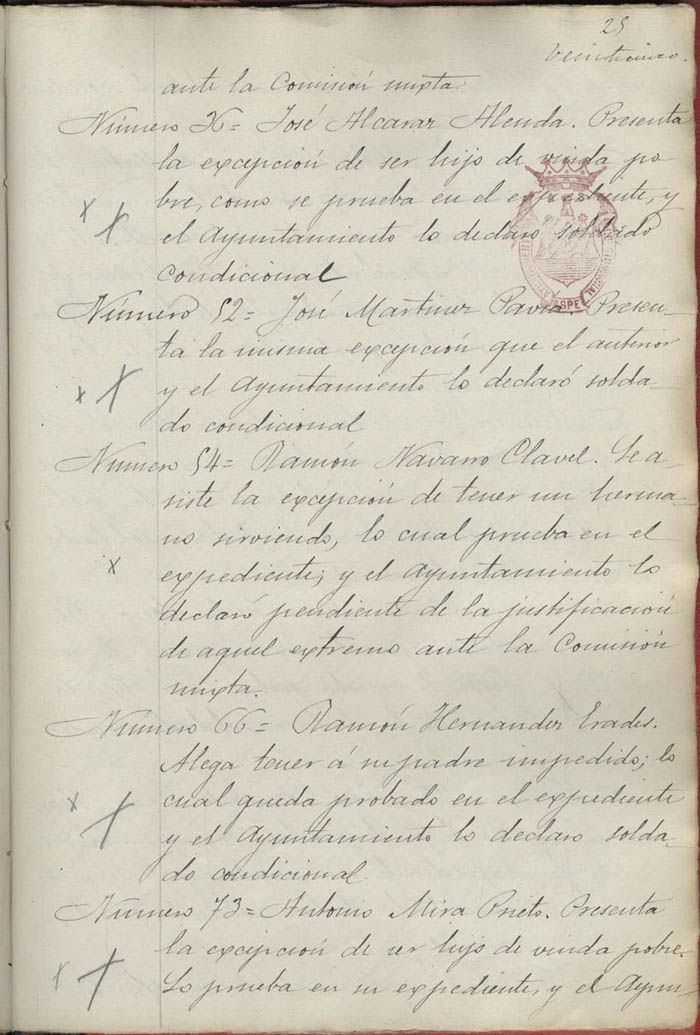 25
Veinticinco.
ante la Comisión mixta.
Número 36= José Alcaraz Alenda. Presenta
la excepción de ser hijo de viuda po-
bre, como se prueba en el expediente, y
el Ayuntamiento lo declaro soldado
condicional
Número 52= José Martinez Pavia Presen-
ta la misma excepción que el anterior
y el Ayuntamiento lo declaró solda-
do condicional
Número 54= Ramón Navarro Clavel. Le a-
siste la excepción de tener un herma-
no sirviendo, lo cual prueba en el
expediente; y el Ayuntamiento lo
declaró pendiente de la justificación
de aquel extremo ante la Comisión
mixta.
Número 66= Ramón Hernandez Erades.
Alega tener á su padre impedido; lo
cual queda probado en el expediente
y el Ayuntamiento lo declaro solda-
do condicional.
Número 73= Antonio Mira Prieto. Presenta
la excepción de ser hijo de viuda pobre.
Lo prueba en su expediente, y el Ayun-